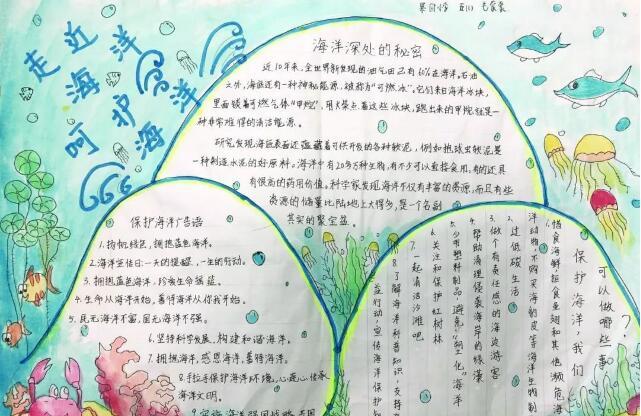 走近
海洋
呵护海洋
海洋深处的秘密
近10年来，全世界新发现的油气田已有60%在海洋。石油
之外，海底还有一种神秘能源，被称为“可燃冰”。它们来自海洋冰块，
里面锁着可燃气体“甲烷”，用火柴点着这些冰块，跑出来的甲烷就是一
种非常难得的清洁能源。
研究发现海底表面还蕴藏着可供开发的各种软泥，例如抱球虫软泥是
一种制造水泥的好原料。海洋中有20多万种生物，有不少可以直接食用，有的还具
有很高的药用价值。科学家发现海洋不仅有丰富的资源，而且有些
资源的储量比陆地上大得多，是一个名副
其实的聚宝盆。
保护海洋广告语
1、扬帆绿色，拥抱蓝色海洋。
2、海洋宣传日：一天的提醒，一生的行动。
3、拥抱蓝色海洋，珍爱生命摇篮。
4、生命从海洋开始，善待海洋从你我开始。
5、民无海洋不富，国无海洋不强。
6、坚持科学发展，构建和谐海洋。
7、拥抱海洋，感恩海洋，善待海洋。
8、手拉手保护海洋环境，心连心传承
海洋文明。
保护海洋，我们
可以做哪些事？
1、惜食海鲜，拒食鱼翅和其他濒危海
洋动物，不购买海豹皮等海洋生物制
2、过低碳生活
3、做个有责任感的海边游客
4、帮助清理侵袭海岸的绿藻
5、少带塑料制品，避免“塑化”海洋
6、关注和保护红树林
7、一起清洁沙滩吧
8、了解海洋科普知识，支持
益行动，宣传海洋保护知